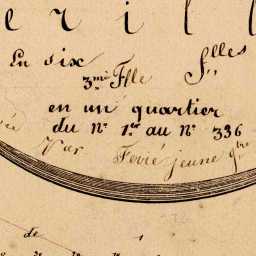 e r i l l
En six flles
3me Flle
en un quartier
du No 1er au No 336
Par Ferré jeune gtre
de